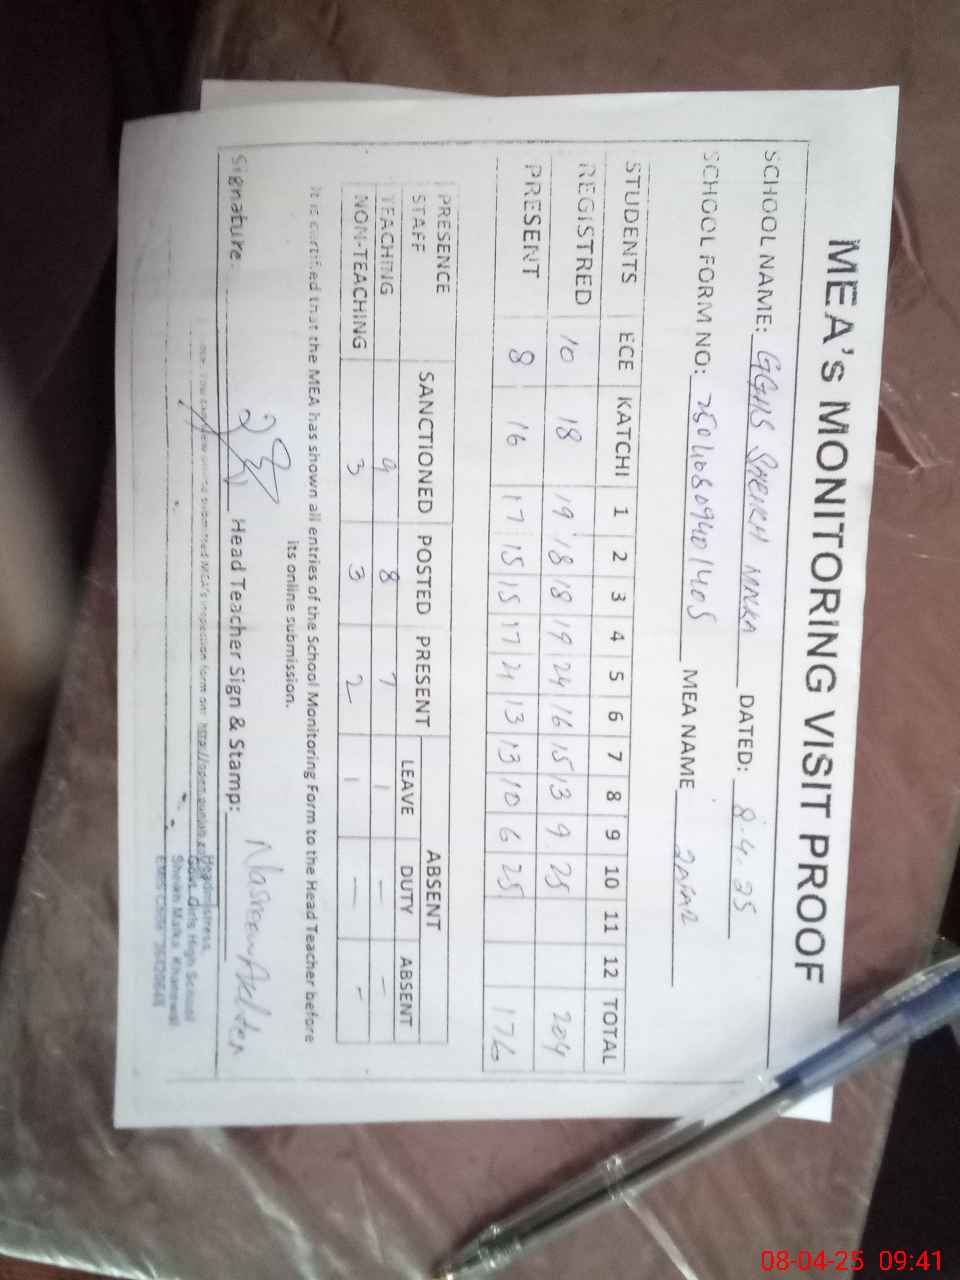 MEA's MONITORING VISIT PROOF
SCHOOL NAME: GGHS SHEIKH MALKA DATED: 8.4.25
SCHOOL FORM NO: 25040809401405 MEA NAME ZAFAR
STUDENTS ECE KATCHI 1 2 3 4 5 6 7 8 9 10 11 12 TOTAL
REGISTRED 10 18 19 18 18 19 24 16 15 13 9 25 204
PRESENT 8 16 17 15 15 17 21 13 13 10 6 25 176
PRESENCE STAFF SANCTIONED POSTED PRESENT ABSENT
LEAVE DUTY ABSENT
TEACHING 9 8 7 1 - -
NON-TEACHING 3 3 2 1 - -
It is certified that the MEA has shown all entries of the School Monitoring Form to the Head Teacher before
its online submission.
Signature: Head Teacher Sign & Stamp: Nasreen Akhter
submitted MEA's inspection form on: http://open.punjab.
Headmistress,
Govt. Girls High School
Sheikh Malka Khanewal
EMIS Code
08-04-25 09:41